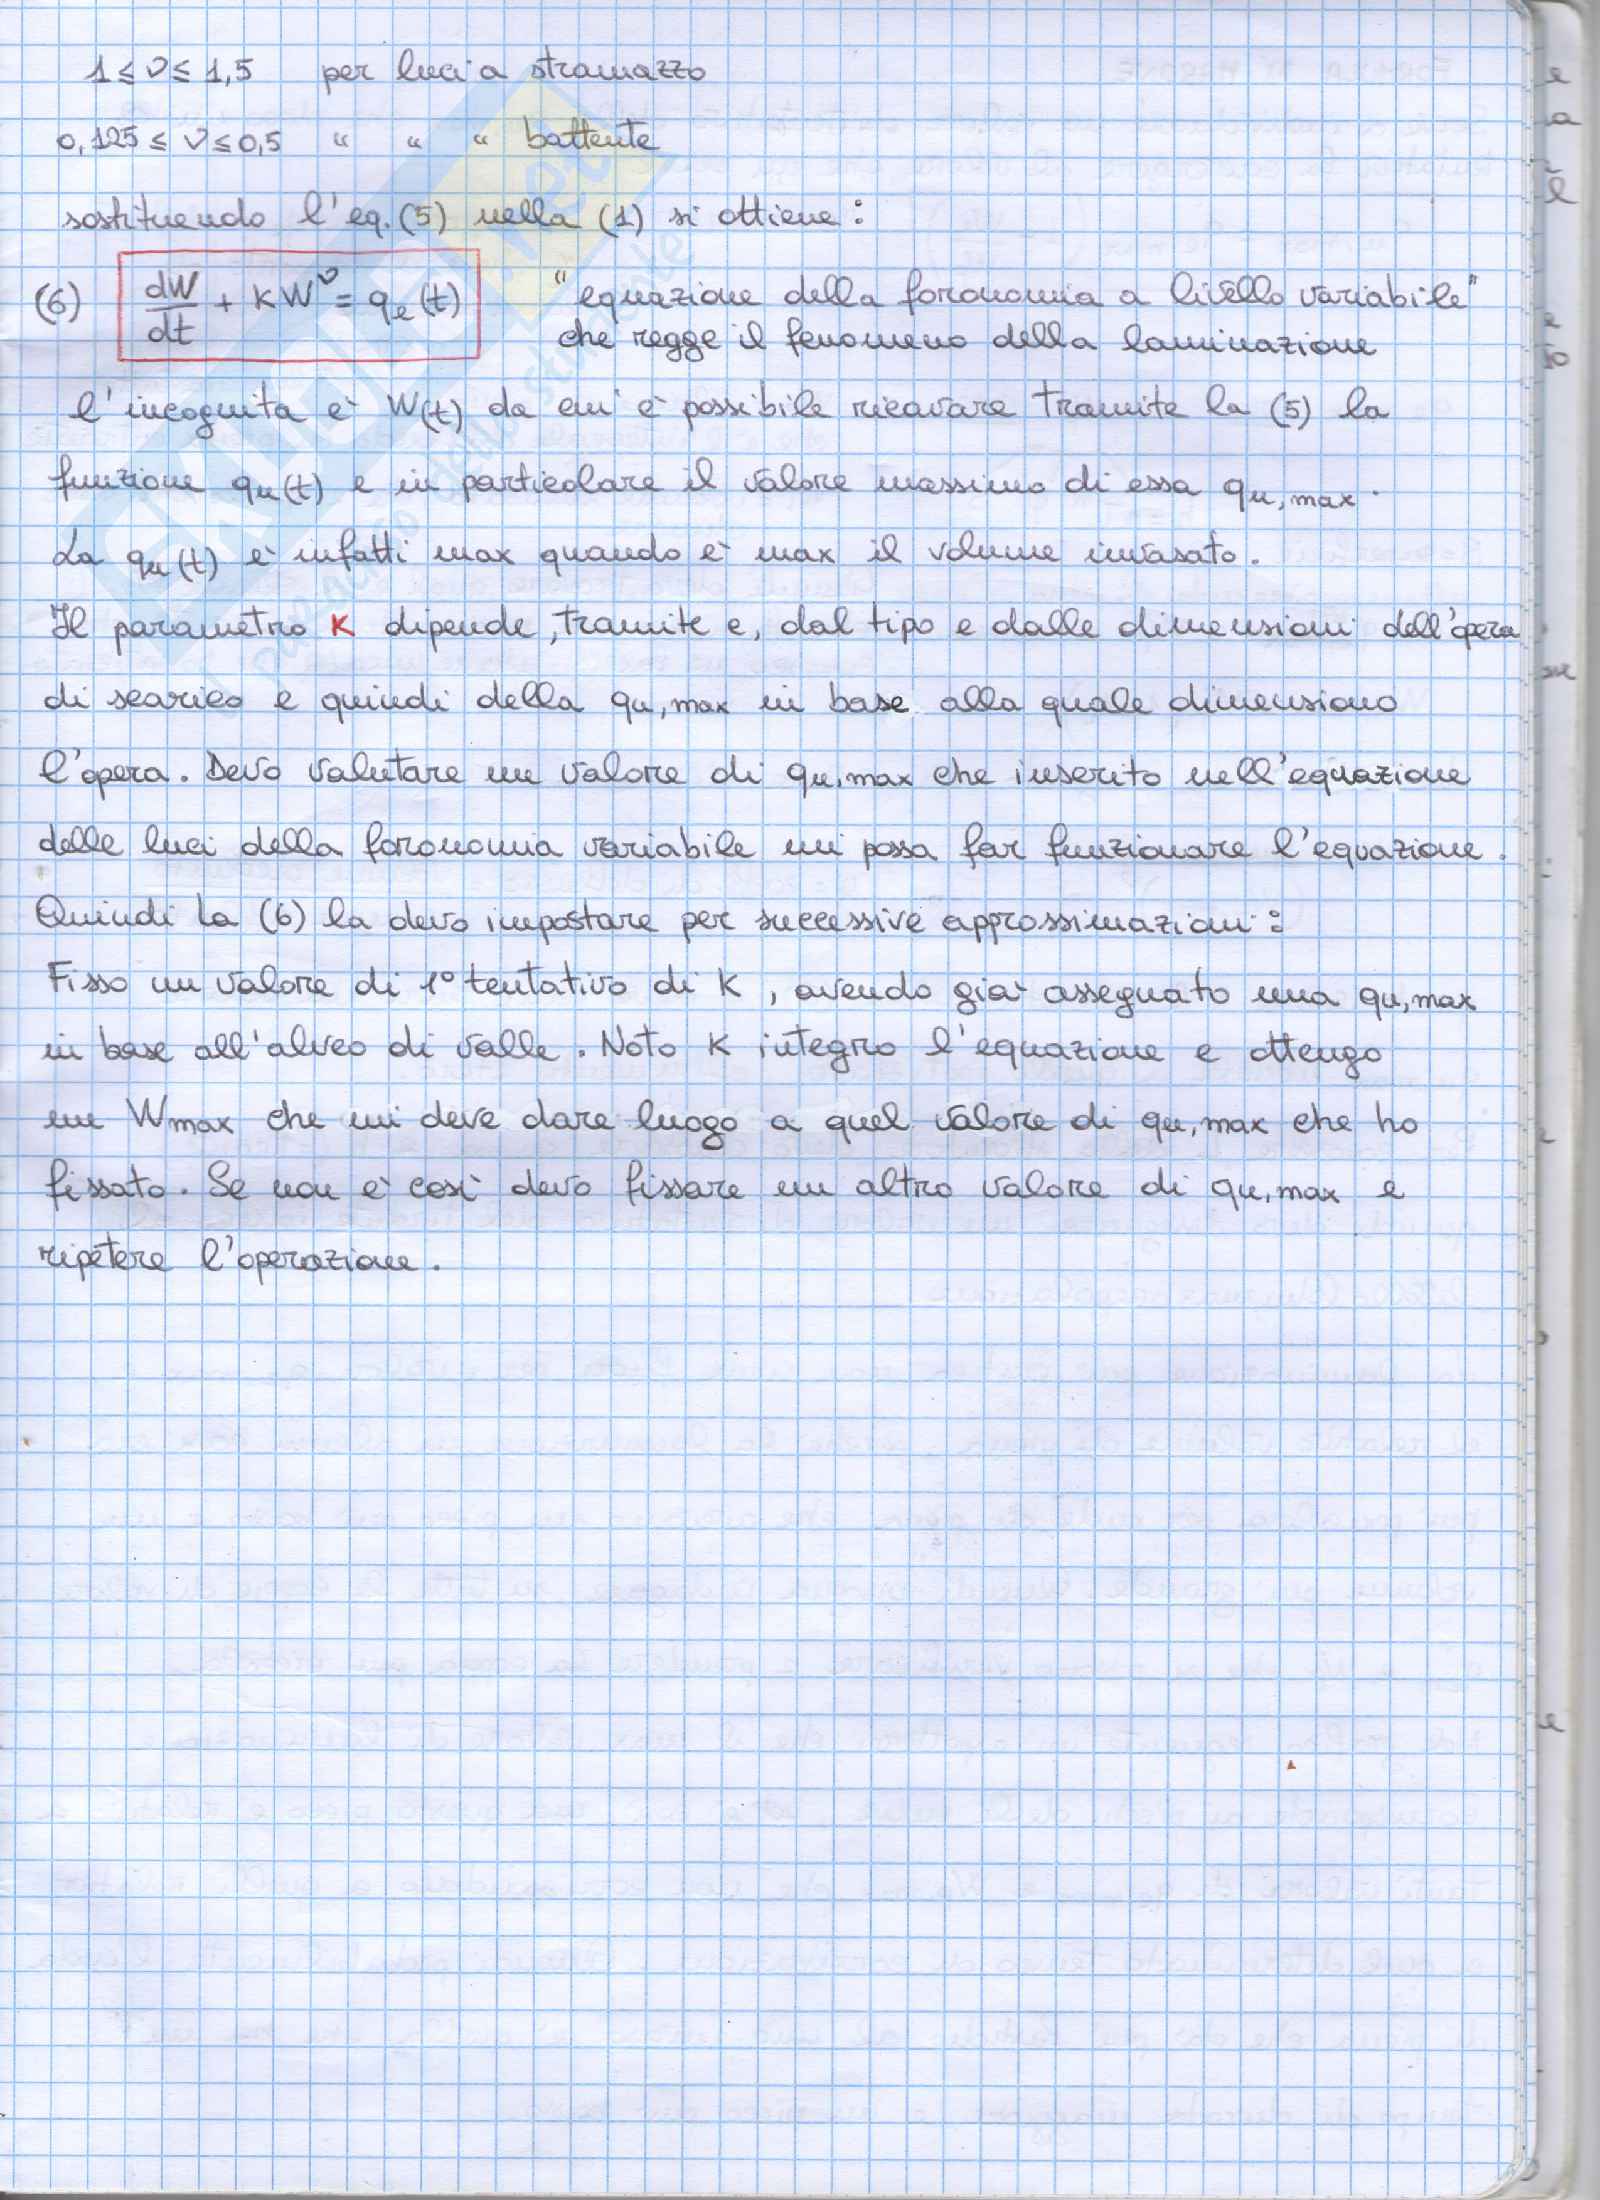 1 ≤ ν ≤ 1,5 per luci a stramazzo
0,125 ≤ ν ≤ 0,5 " " " battente
sostituendo l'eq. (5) nella (1) si ottiene:
(6) dW/dt + K W^ν = qe (t) "equazione della foronomia a livello variabile"
che regge il fenomeno della laminazione
l'incognita è W(t) da cui è possibile ricavare tramite la (5) la
funzione qu(t) e in particolare il valore massimo di essa qu,max.
La qu(t) è infatti max quando è max il volume invasato.
Il parametro K dipende, tramite e, dal tipo e dalle dimensioni dell'opera
di scarico e quindi della qu,max in base alla quale dimensiono
l'opera. Devo valutare un valore di qu,max che inserito nell'equazione
delle luci della foronomia variabile mi possa far funzionare l'equazione.
Quindi la (6) la devo impostare per successive approssimazioni:
Fisso un valore di 1° tentativo di K, avendo già assegnato una qu,max
in base all'alveo di valle. Noto K integro l'equazione e ottengo
un Wmax che mi deve dare luogo a quel valore di qu,max che ho
fissato. Se non è così devo fissare un altro valore di qu,max e
ripetere l'operazione.